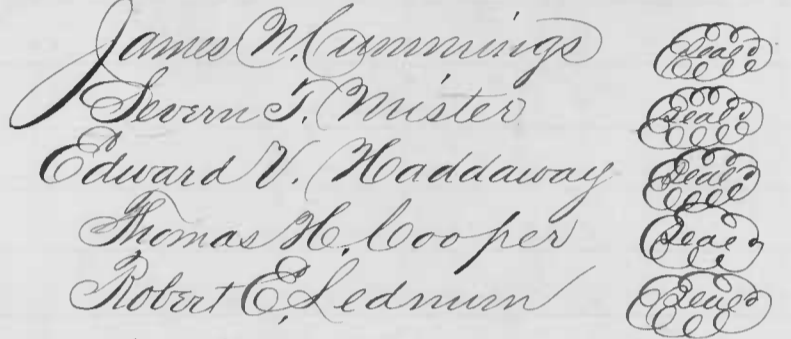 James N. Cummings Seal
Severn T. Mister Seal
Edward V. Haddaway Seal
Thomas H. Cooper Seal
Robert E. Lednum Seal